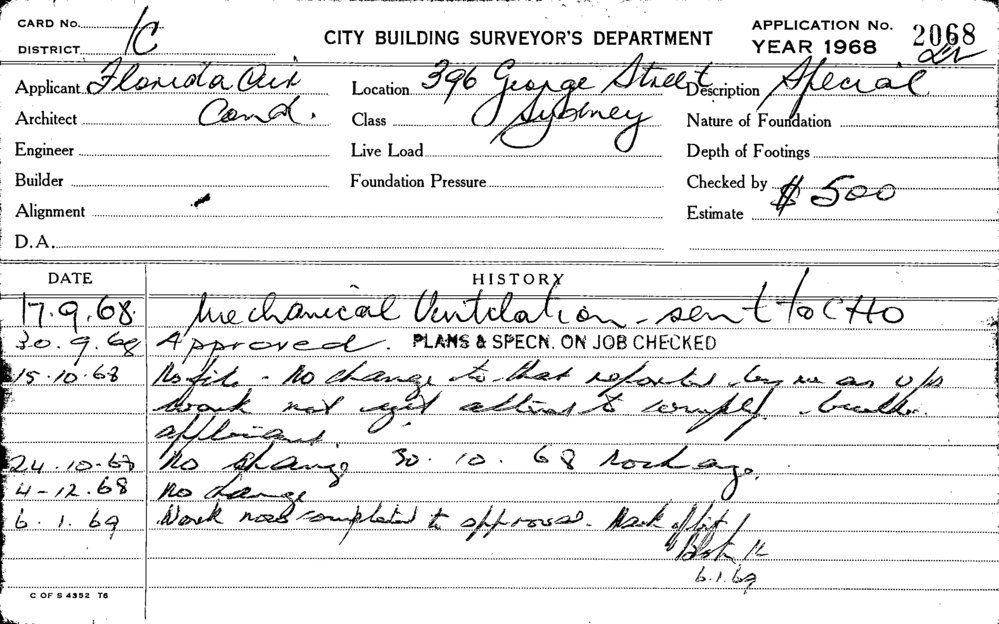 CARD No.
DISTRICT 1C
CITY BUILDING SURVEYOR'S DEPARTMENT
APPLICATION No. 2068
YEAR 1968
Applicant Florida Air
Location 396 George Street
Description Special
Architect Cond.
Class Sydney
Nature of Foundation
Engineer
Live Load
Depth of Footings
Builder
Foundation Pressure
Checked by $500
Alignment
Estimate
D.A.
DATE HISTORY
17.9.68. Mechanical Ventilation - sent to CHO
30.9.68 Approved. PLANS & SPECN. ON JOB CHECKED
15.10.68 No file - No change to that reported by me on
work not
24.10.68 No change 30.10.68 No change.
4-12.68 No change
6.1.69 Work now completed to approval. Mark off
6.1.69
C OF S 4352 T6